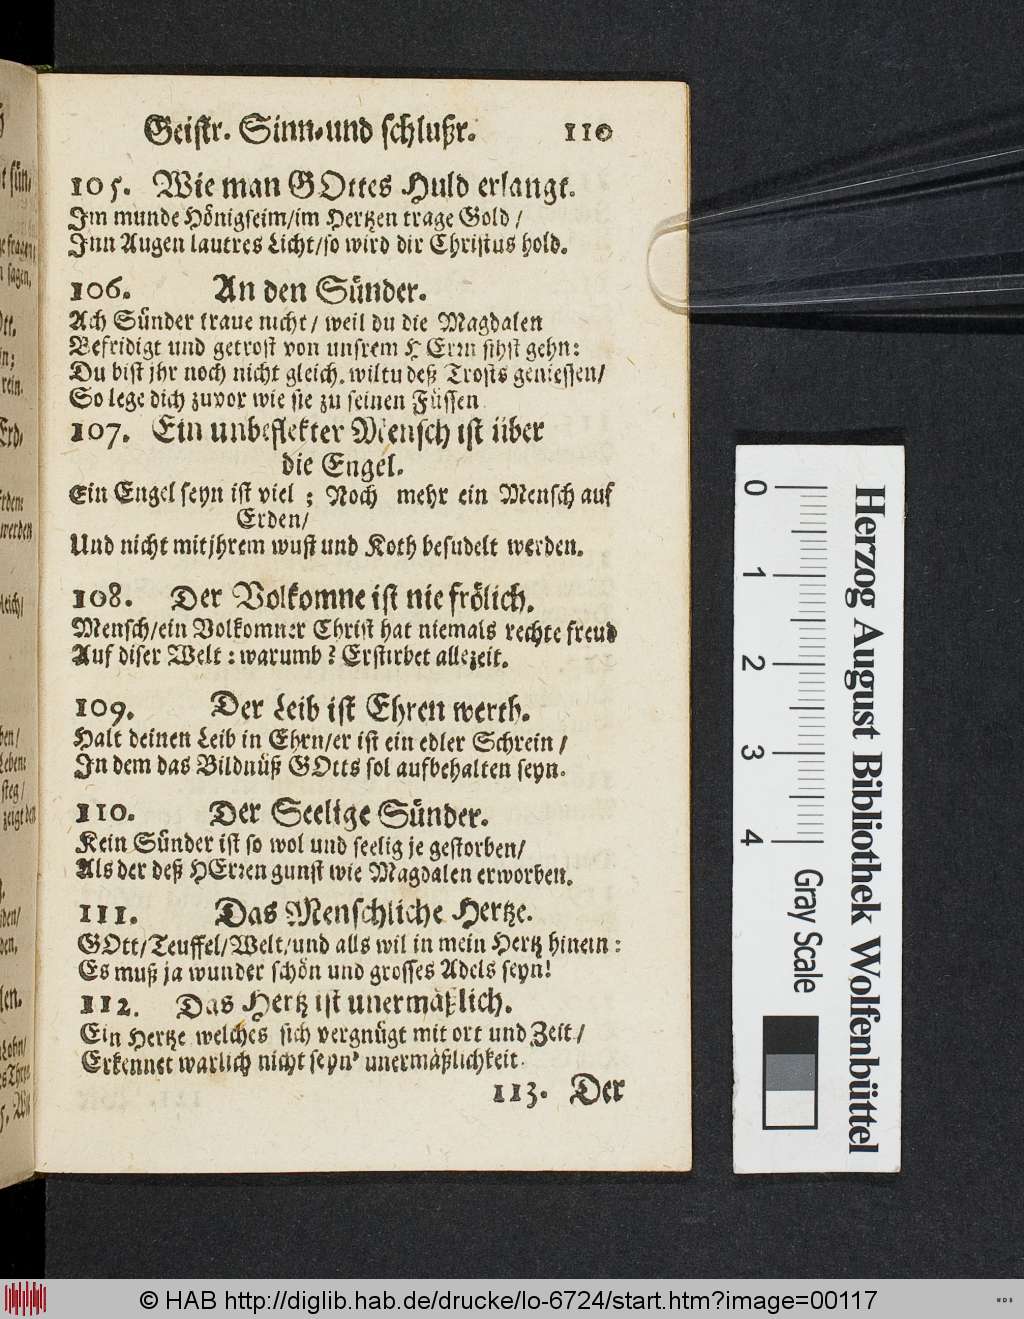 Geistr. Sinn-und schlußr. 110
105. Wie man GOttes Huld erlangt.
Im munde Hönigseim/im Hertzen trage Gold/
Inn Augen lautres Licht/so wird dir Christus hold.
106. An den Sünder.
Ach Sünder traue nicht/ weil du die Magdalen
Befridigt und getrost von unsrem HErrn sihst gehn:
Du bist jhr noch nicht gleich. wiltu deß Trosts geniessen/
So lege dich zuvor wie sie zu seinen Füssen
107. Ein unbeflekter Mensch ist über
die Engel.
Ein Engel seyn ist viel; Noch mehr ein Mensch auf
Erden/
Und nicht mit jhrem wust und Koth besudelt werden.
108. Der Volkomne ist nie frölich.
Mensch/ein Volkomner Christ hat niemals rechte freud
Auf diser Welt: warumb? Er stirbet allezeit.
109. Der Leib ist Ehren werth.
Halt deinen Leib in Ehrn/er ist ein edler Schrein/
In dem das Bildnüß GOtts sol aufbehalten seyn.
110. Der Seelige Sünder.
Kein Sünder ist so wol und seelig je gestorben/
Als der deß HErren gunst wie Magdalen erworben.
111. Das Menschliche Hertze.
GOtt/Teuffel/Welt/und alls wil in mein Hertz hinein:
Es muß ja wunder schön und grosses Adels seyn!
112. Das Hertz ist unermäßlich.
Ein Hertze welches sich vergnügt mit ort und Zeit/
Erkennet warlich nicht seyn' unermäßlichkeit.
113. Der
0 1 2 3 4 Gray Scale
Herzog August Bibliothek Wolfenbüttel
© HAB http://diglib.hab.de/drucke/lo-6724/start.htm?image=00117